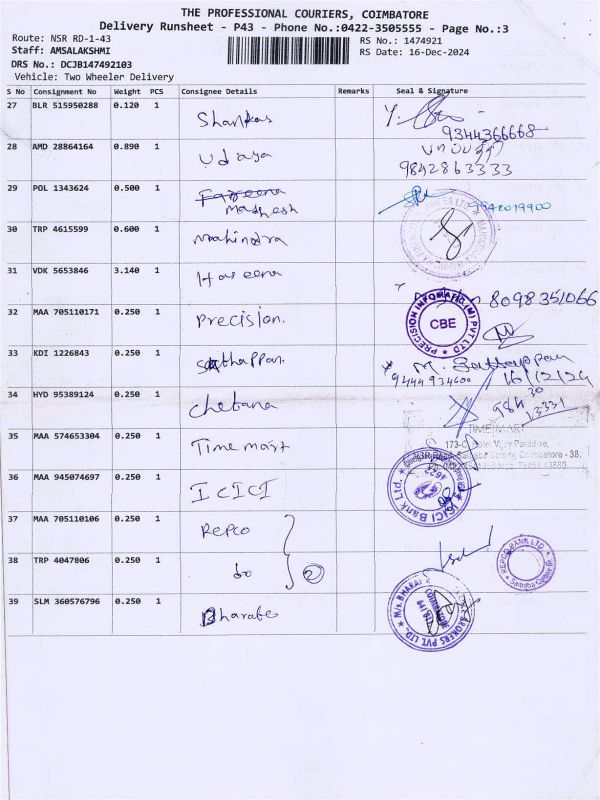 THE PROFESSIONAL COURIERS, COIMBATORE
Delivery Runsheet - P43 - Phone No.:0422-3505555 - Page No.:3
Route: NSR RD-1-43 RS No.: 1474921
Staff: AMSALAKSHMI RS Date: 16-Dec-2024
DRS No.: DCJB147492103
Vehicle: Two Wheeler Delivery
S No Consignment No Weight PCS Consignee Details Remarks Seal & Signature
27 BLR 515950288 0.120 1 Shankar
9344366668
28 AMD 28864164 0.890 1 Udaya
9842863333
29 POL 1343624 0.500 1 Fajeena
Madhesh 9942019900
30 TRP 4615599 0.600 1 Mahindra
31 VDK 5653846 3.140 1 Haseena
8098351066
32 MAA 705110171 0.250 1 Precision.
PRECISION INFOMATIC (M) PVT LTD CBE
33 KDI 1226843 0.250 1 Sathappan. M. Sattappan
9444934600 16/12/24
34 HYD 95389124 0.250 1 Chetana
984 30
13331
35 MAA 574653304 0.250 1 Timemart
TIME MART
173-C, Hotel Vijay Paradise,
NSR Road, Saibaba Colony, Coimbatore - 38.
36 MAA 945074697 0.250 1 ICICI
ICICI Bank Ltd.
37 MAA 705110106 0.250 1 Repco
38 TRP 4047806 0.250 1 do 2
REPCO BANK LTD.
Saibaba Colony
39 SLM 360576796 0.250 1 Bharate
M/s. BHARAT BROKERS PVT. LTD.,
COIMBATORE
641 011